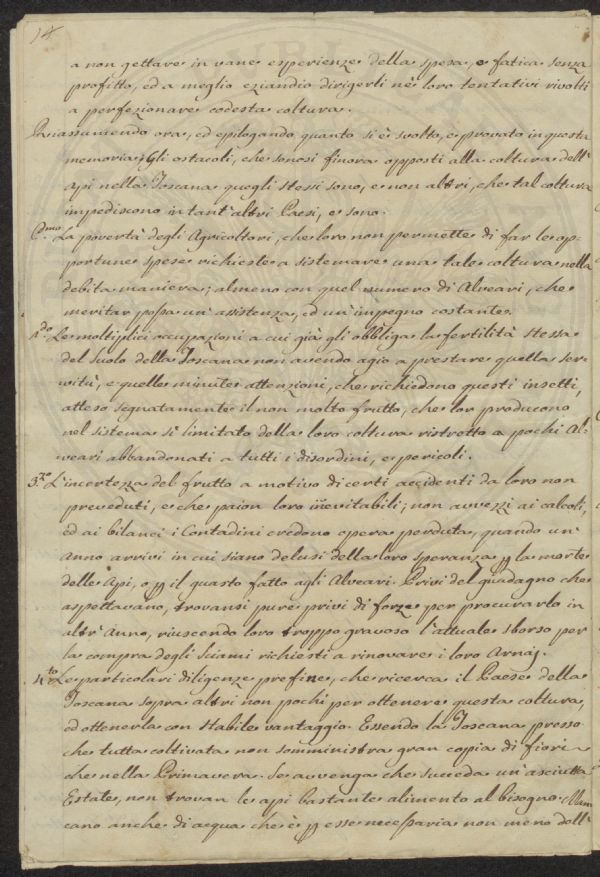 14
a non gettare in vane esperienze della spesa, e fatica senza
profitto, ed a meglio eziandio dirigerli nè loro tentativi rivolti
a perfezionare codesta coltura.
Riassumendo ora, ed epilogando quanto si è svolto, e provato in questa
memoria; Gli ostacoli, che sonosi finora opposti alla coltura dell'
api nella Toscana quegli stessi sono, e non altri, che tal coltura
impediscono in tant'altri Paesi, e sono.
P.mo La povertà degli Agricoltori, che loro non permette di far le op-
portune spese richieste a sistemare una tale coltura nella
debita maniera; almeno con quel numero di Alveari, che
meritar possa un'assistenza, ed un'impegno costante.
2.do Le moltiplici occupazioni a cui già gli obbliga la fertilità stessa
del suolo della Toscana non avendo agio a prestare quella ser-
vitù, e quelle minute attenzioni, che richiedono questi insetti,
atteso segnatamente il non molto frutto, che lor producono
nel sistema sì limitato della loro coltura ristretto a pochi Al-
veari abbandonati a tutti i disordini, e pericoli.
3.zo L'incertezza del frutto a motivo di certi accidenti da loro non
preveduti, e che paion loro inevitabili; non avvezzi ai calcoli,
ed ai bilanci i Contadini credono opera perduta, quando un'
Anno arrivi in cui siano delusi della loro speranza p la morte
delle Api, o p il guasto fatto agli Alveari. Privi del guadagno che
aspettavano, trovansi pure privi di forze per procurarlo in
altr'Anno, riuscendo loro troppo gravoso l'attuale sborso per
la compra degli sciami richiesti a rinovare i loro Arnaj.
4.to Le particolari diligenze prefine, che ricerca il Paese della
Toscana sopra altri non pochi per ottenere questa coltura,
ed ottenerla con stabile vantaggio. Essendo la Toscana presso
che tutta coltivata non somministra gran copia di fiori
che nella Primavera. Se avvenga che succeda un'asciutta
Estate, non trovan le api bastante alimento al bisogno. Man
cano anche di acqua che è p esse necessaria non meno dell'